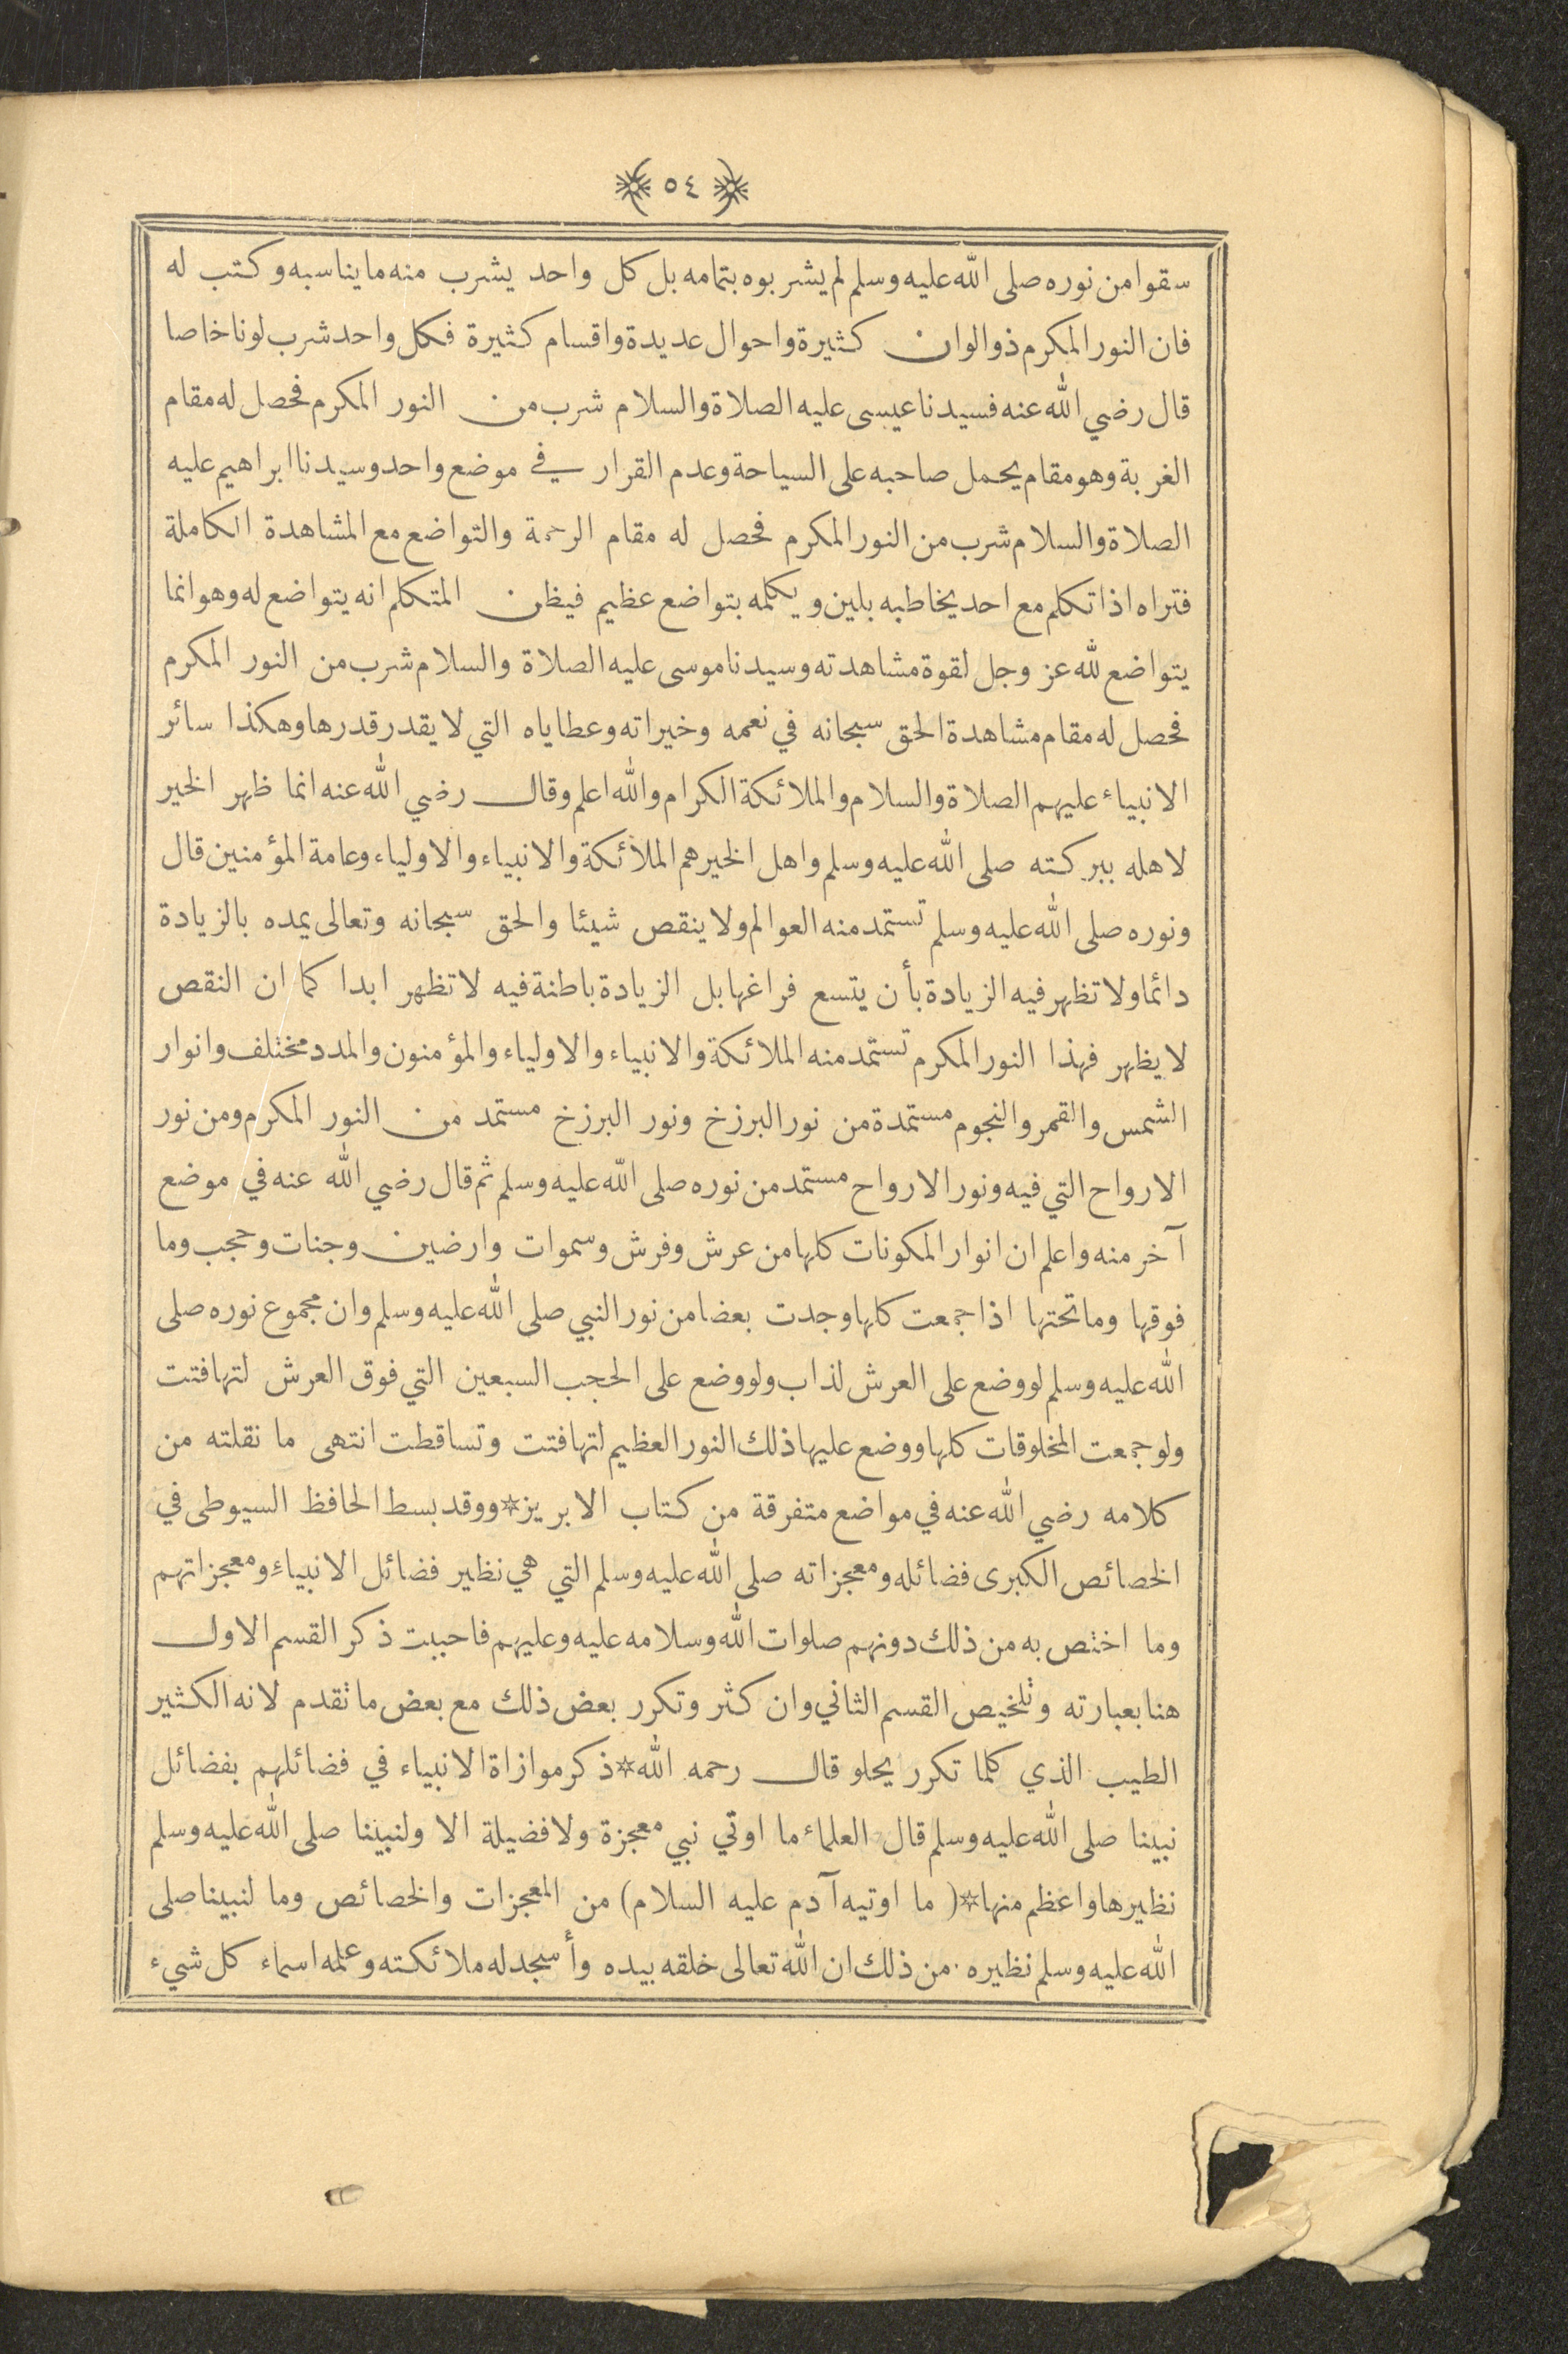 ٥٤
سقوا من نوره صلى الله عليه وسلم لم يشربوه بتمامه بل كل واحد يشرب منه ما يناسبه وكتب له
فان النور المكرم ذو الوان كثيرة واحوال عديدة واقسام كثيرة فكل واحد شرب لونا خاصا
قال رضي الله عنه فسيدنا عيسى عليه الصلاة والسلام شرب من النور المكرم فحصل له مقام
الغربة وهو مقام يحمل صاحبه على السياحة وعدم القرار في موضع واحد وسيدنا ابراهيم عليه
الصلاة والسلام شرب من النور المكرم فحصل له مقام الرحمة والتواضع مع المشاهدة الكاملة
فتراه اذا تكلم مع احد يخاطبه بلين ويكلمه بتواضع عظيم فيظن المتكلم انه يتواضع له وهو انما
يتواضع لله عز وجل لقوة مشاهدته وسيدنا موسى عليه الصلاة والسلام شرب من النور المكرم
فحصل له مقام مشاهدة الحق سبحانه في نعمه وخيراته وعطاياه التي لا يقدر قدرها وهكذا سائر
الانبياء عليهم الصلاة والسلام والملائكة الكرام والله اعلم وقال رضي الله عنه انما ظهر الخير
لاهله ببركته صلى الله عليه وسلم واهل الخير هم الملائكة والانبياء والاولياء وعامة المؤمنين قال
ونوره صلى الله عليه وسلم تستمد منه العوالم ولا ينقص شيئا والحق سبحانه وتعالى يمده بالزيادة
دائما ولا تظهر فيه الزيادة بأن يتسع فراغها بل الزيادة باطنة فيه لا تظهر ابدا كما ان النقص
لا يظهر فهذا النور المكرم تستمد منه الملائكة والانبياء والاولياء والمؤمنون والمدد مختلف وانوار
الشمس والقمر والنجوم مستمدة من نور البرزخ ونور البرزخ مستمد من النور المكرم ومن نور
الارواح التي فيه ونور الارواح مستمد من نوره صلى الله عليه وسلم ثم قال رضي الله عنه في موضع
آخر منه واعلم ان انوار المكونات كلها من عرش وفرش وسموات وارضين وجنات وحجب وما
فوقها وما تحتها اذا جمعت كلها وجدت بعضا من نور النبي صلى الله عليه وسلم وان مجموع نوره صلى
الله عليه وسلم لو وضع على العرش لذاب ولو وضع على الحجب السبعين التي فوق العرش لتهافتت
ولو جمعت المخلوقات كلها ووضع عليها ذلك النور العظيم لتهافتت وتساقطت انتهى ما نقلته من
كلامه رضي الله عنه في مواضع متفرقة من كتاب الابريز * ووقد بسط الحافظ السيوطى في
الخصائص الكبرى فضائله ومعجزاته صلى الله عليه وسلم التي هي نظير فضائل الانبياءِ ومعجزاتهم
وما اختص به من ذلك دونهم صلوات الله وسلامه عليه وعليهم فاحببت ذكر القسم الاول
هنا بعبارته وتلخيص القسم الثاني وان كثر وتكرر بعض ذلك مع بعض ما تقدم لانه الكثير
الطيب الذي كلما تكرر يحلو قال رحمه الله * ذكر موازاة الانبياء في فضائلهم بفضائل
نبينا صلى الله عليه وسلم قال العلماء ما اوتي نبي معجزة ولا فضيلة الا ولنبينا صلى الله عليه وسلم
نظيرها واعظم منها * ( ما اوتيه آدم عليه السلام) من المعجزات والخصائص وما لنبينا صلى
الله عليه وسلم نظيره . من ذلك ان الله تعالى خلقه بيده وأسجد له ملائكته وعلمه اسماء كل شيء